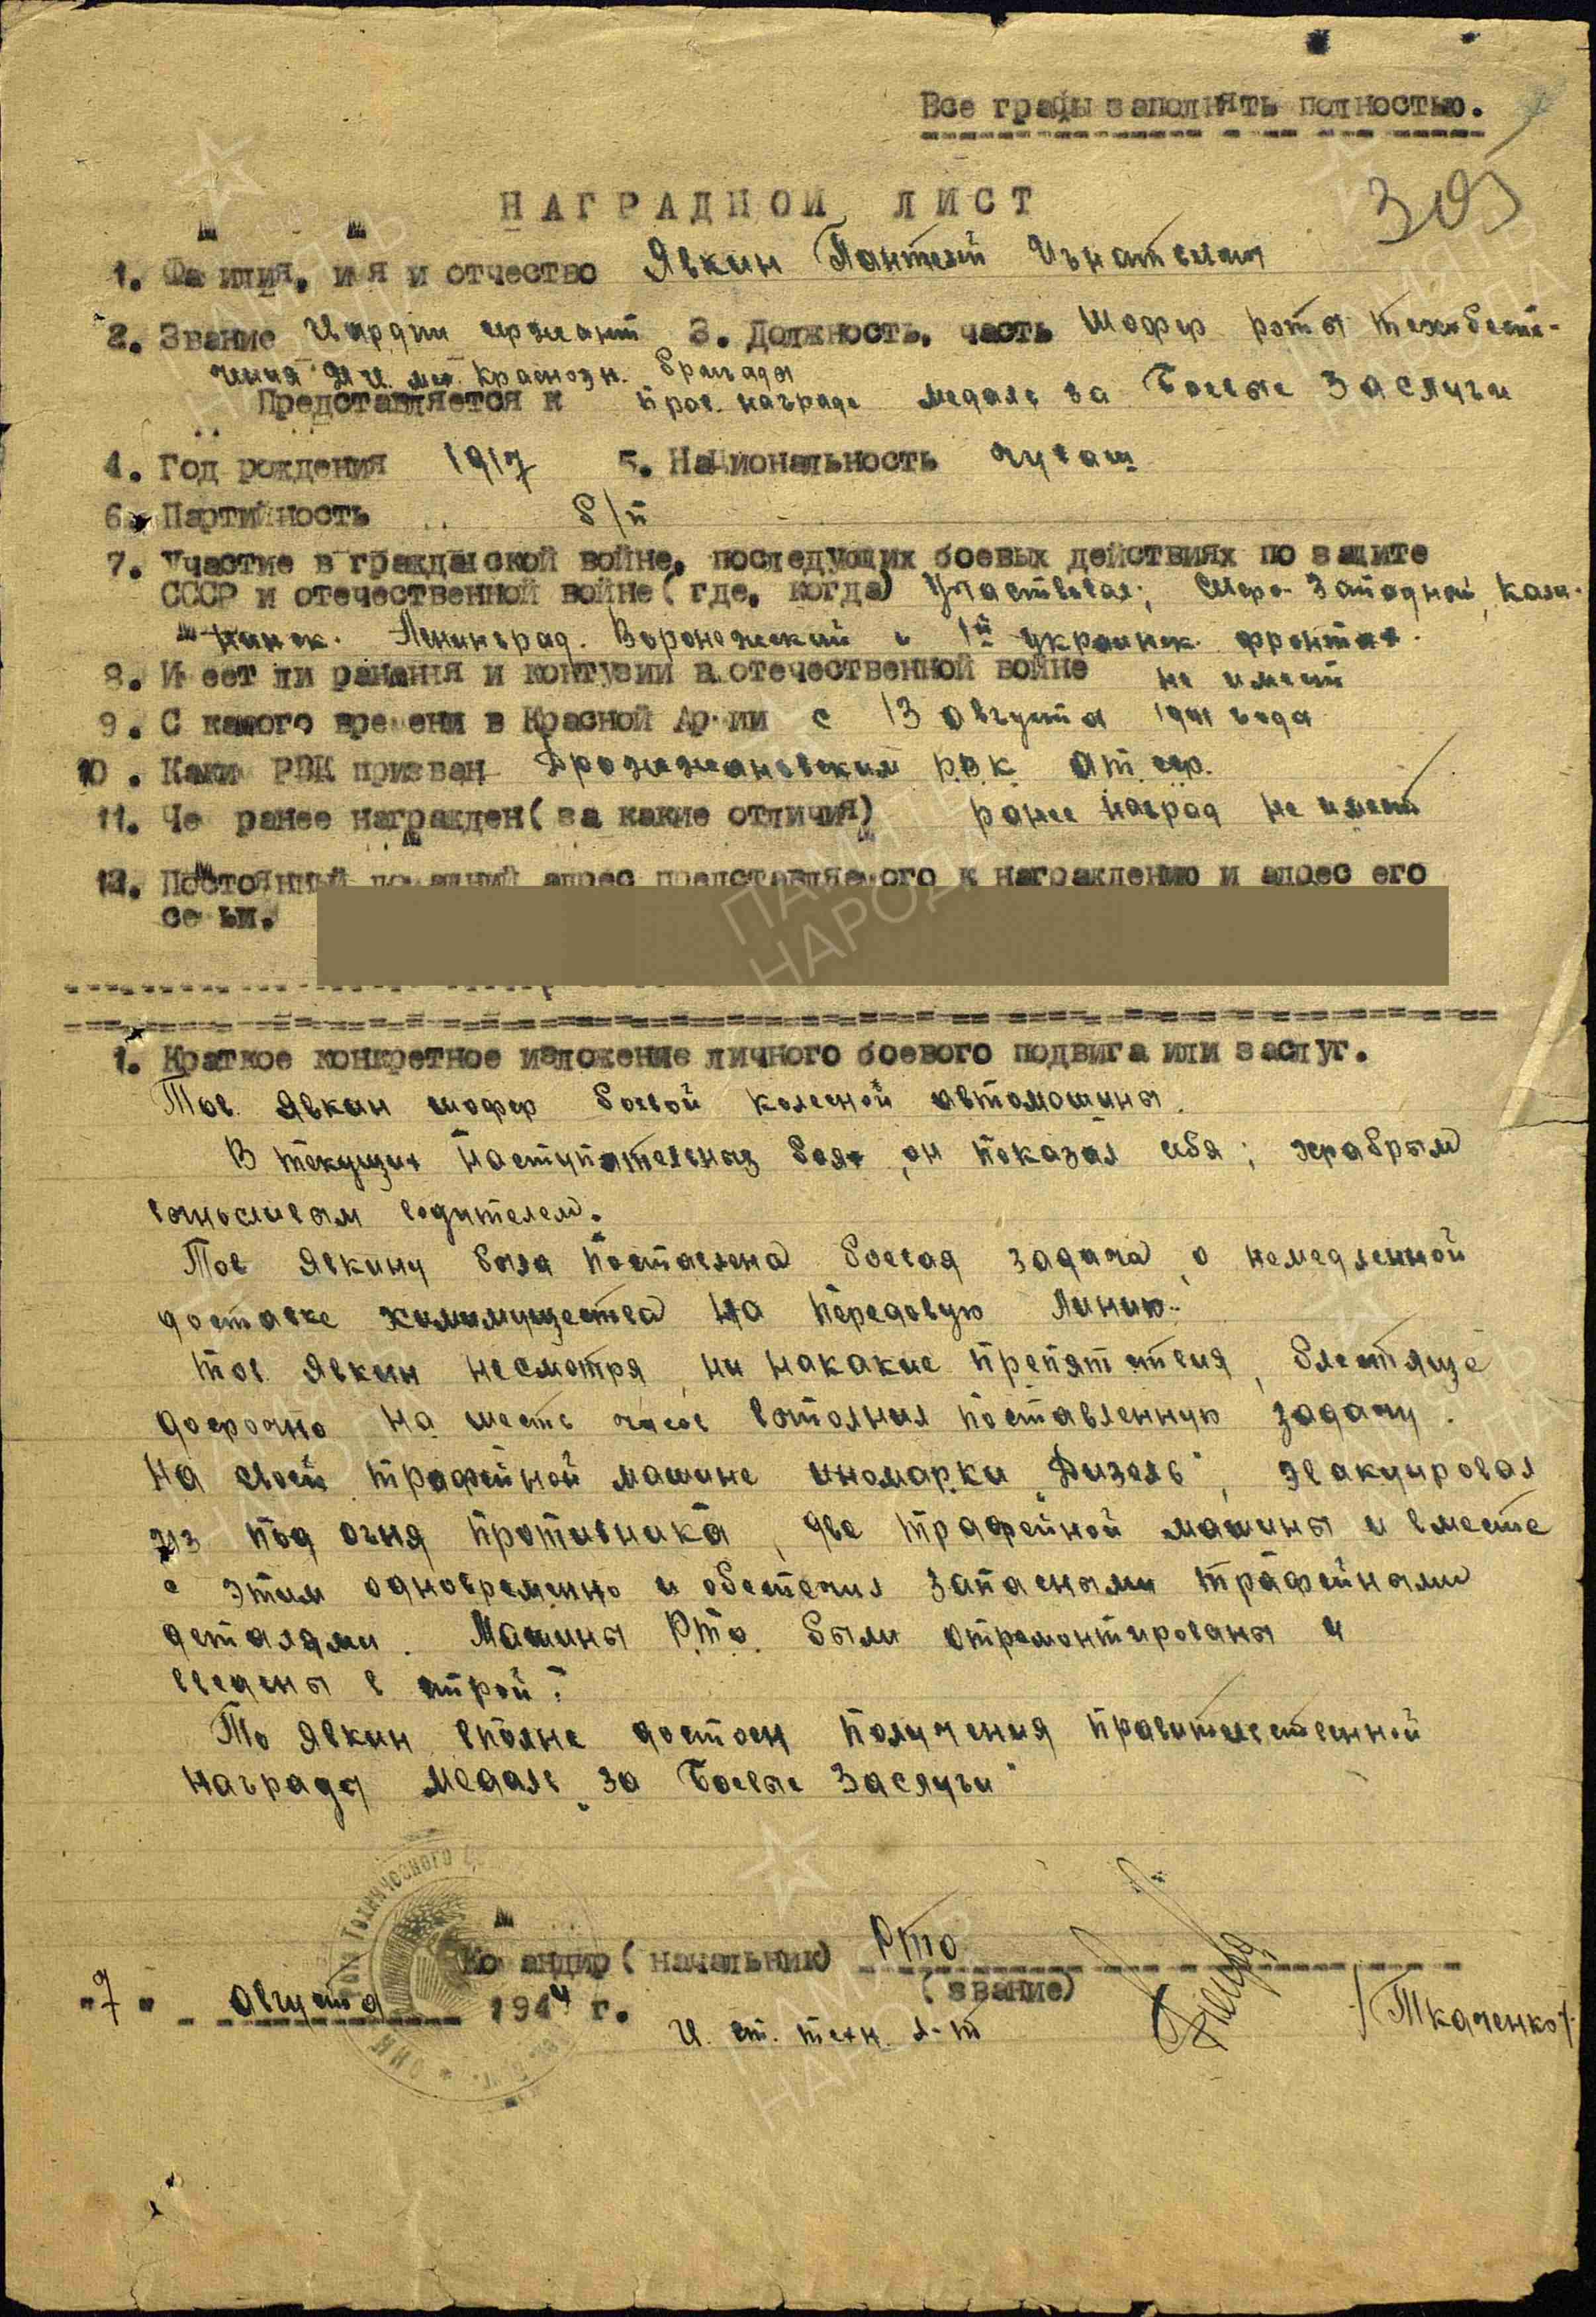 Все графы заполнять полностью.
305
НАГРАДНОЙ ЛИСТ
1. Фамилия, имя и отчество Явкин Пантелей Игнатьевич
2. Звание Гвардии сержант 3. Должность, часть Шофер роты техобеспе-
чения гв. мех. Краснозн. бригады
Представляется к прав. награде медаль за Боевые Заслуги
4. Год рождения 1917 5. Национальность чуваш
6. Партийность б/п
7. Участие в гражданской войне, последующих боевых действиях по защите
СССР и отечественной войне (где, когда) Участвовал; Северо-Западной, Кали-
нинск. Ленинград. Воронежский и 1й украинск. фронтах.
8. Имеет ли ранения и контузии в отечественной войне не имеет
9. С какого времени в Красной Армии с 13 августа 1941 года
10. Каким РВК призван Дрожжановским Р.В.К. Ат. сср.
11. Чем ранее награжден (за какие отличия) ранее наград не имеет
12. Постоянный домашний адрес представляемого к награждению и адрес его
семьи.
1. Краткое конкретное изложение личного боевого подвига или заслуг.
Тов. Явкин шофер боевой колесной автомашины.
В текущих наступательных боях, он показал себя; храбрым
выносливым водителем.
Тов Явкину была поставлена боевая задача, о немедленной
доставке химимущества на передовую линию.
Тов. Явкин несмотря, ни накакие препятствия, блестяще
досрочно на шесть часов выполнил поставленную задачу.
На своей трофейной машине иномарки „Дизель", эвакуировал
из под огня противника, две трофейной машины и вместе
с этим одновременно и обеспечил запасными трофейными
деталями. Машины Р.Т.О. были отремонтированы и
введены в строй.
То Явкин вполне достоен получения правительственной
награды медаль „за Боевые Заслуги"
Командир (начальник) РТО
(звание)
"7" августа 1944 г.
Г. ст. техн. л-т
/Ткаченко/
ПАМЯТЬ
НАРОДА